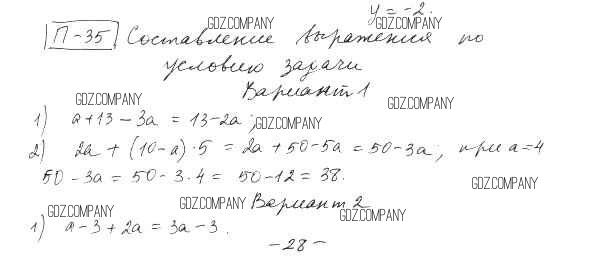 y = -2.
GDZ.COMPANY GDZ.COMPANY
П-35 Составление выражения по
условию задачи
Вариант 1
GDZ.COMPANY GDZ.COMPANY
1) a+13-3a = 13-2a; GDZ.COMPANY
2) 2a + (10-a)·5 = 2a + 50-5a = 50-3a; при a=4
50-3a = 50-3·4 = 50-12 = 38.
GDZ.COMPANY
GDZ.COMPANY GDZ.COMPANY Вариант 2
GDZ.COMPANY
1) a-3+2a = 3a-3.
-28-